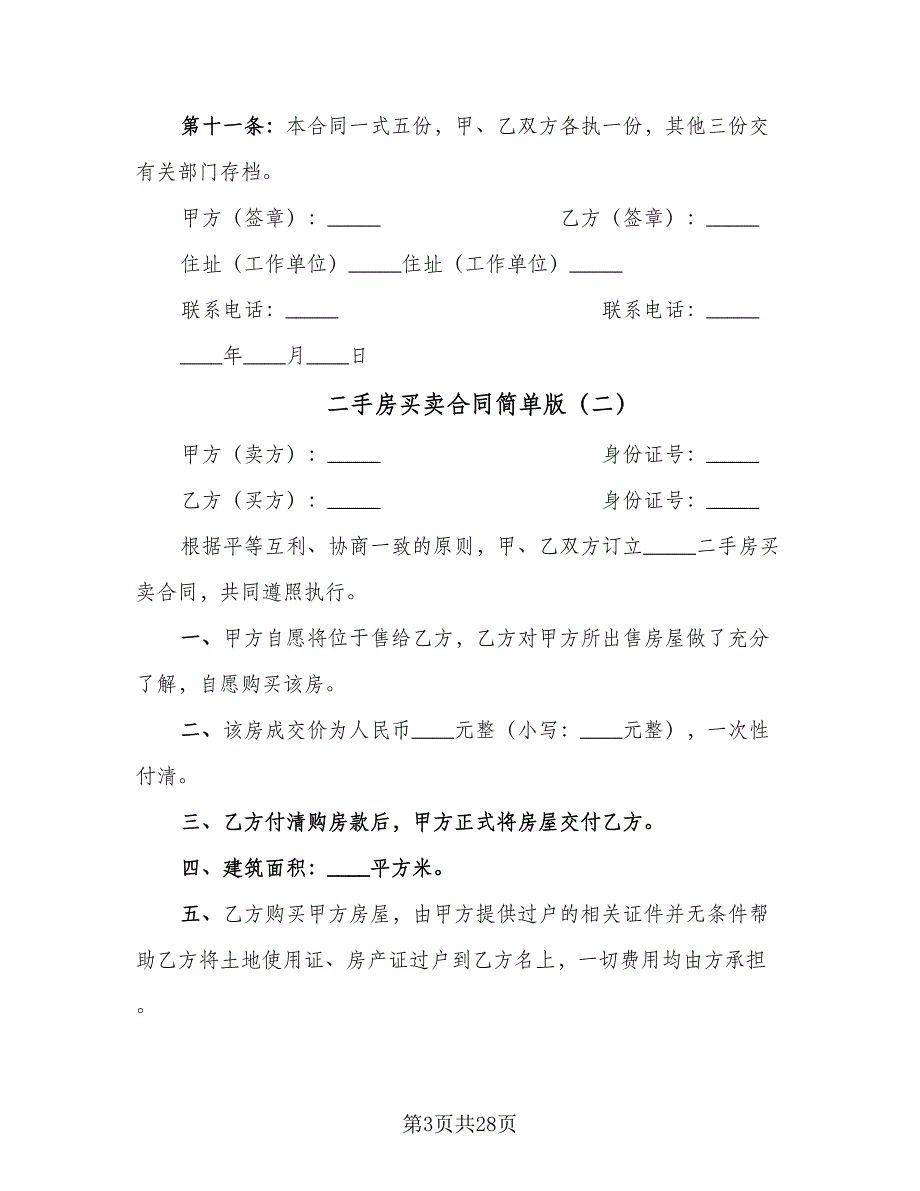 第十一条：本合同一式五份，甲、乙双方各执一份，其他三份交
有关部门存档。
甲方（签章）：_____ 乙方（签章）：_____
住址（工作单位）_____住址（工作单位）_____
联系电话：_____ 联系电话：_____
____年____月____日
二手房买卖合同简单版（二）
甲方（卖方）：_____ 身份证号：_____
乙方（买方）：_____ 身份证号：_____
根据平等互利、协商一致的原则，甲、乙双方订立_____二手房买
卖合同，共同遵照执行。
一、甲方自愿将位于售给乙方，乙方对甲方所出售房屋做了充分
了解，自愿购买该房。
二、该房成交价为人民币____元整（小写：____元整），一次性
付清。
三、乙方付清购房款后，甲方正式将房屋交付乙方。
四、建筑面积：____平方米。
五、乙方购买甲方房屋，由甲方提供过户的相关证件并无条件帮
助乙方将土地使用证、房产证过户到乙方名上，一切费用均由方承担
。
第3页共28页